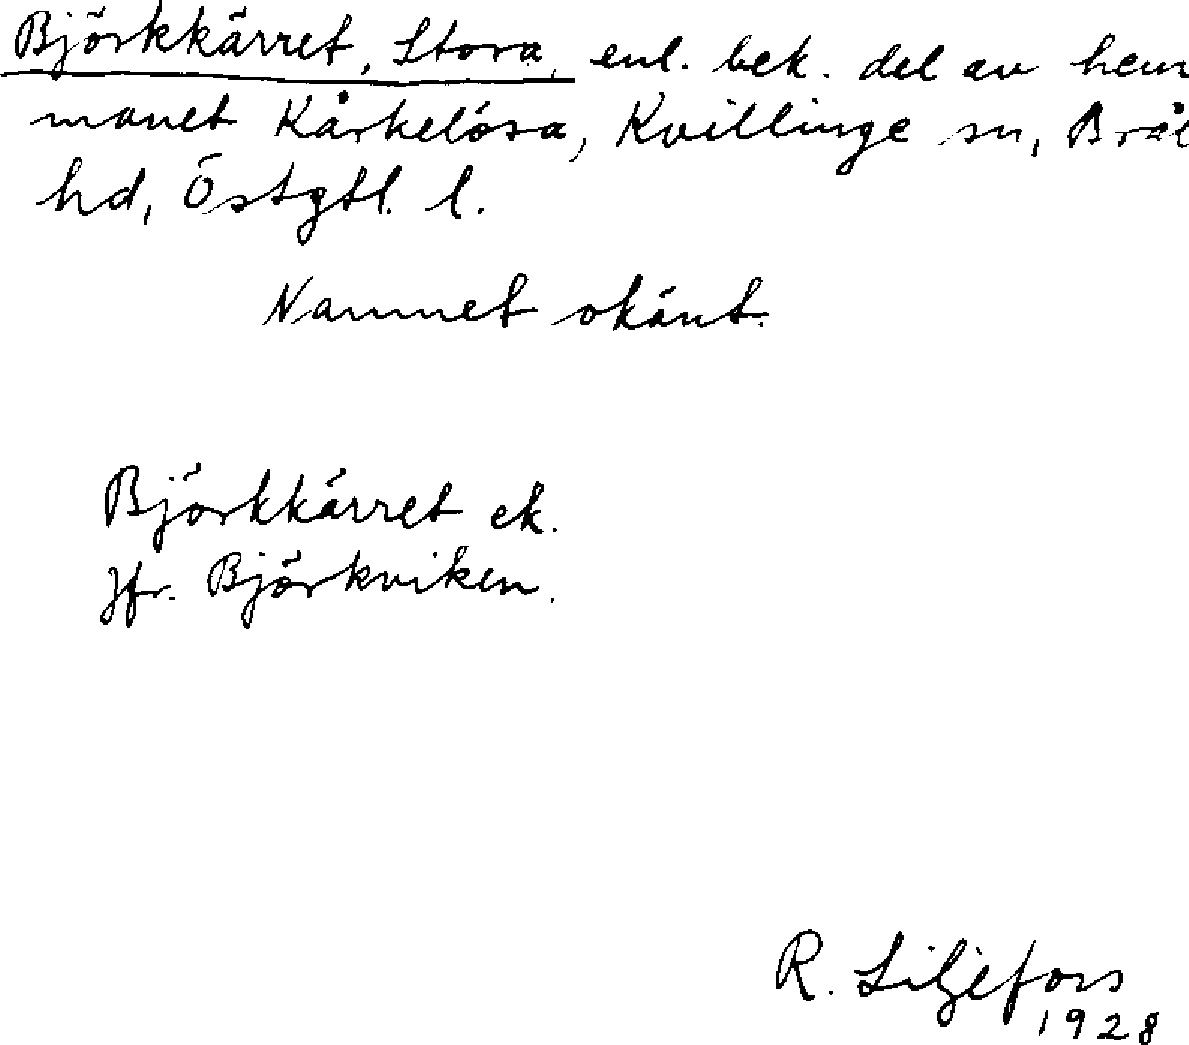 Björkkärret, Stora, enl. bek. del av hem
manet Kårkelösa, Kvillinge sn, Brå
hd, Östgtl. l.
Namnet okänt.
Björkkärret ek.
Jfr. Björkviken.
R. Liljefors
1928